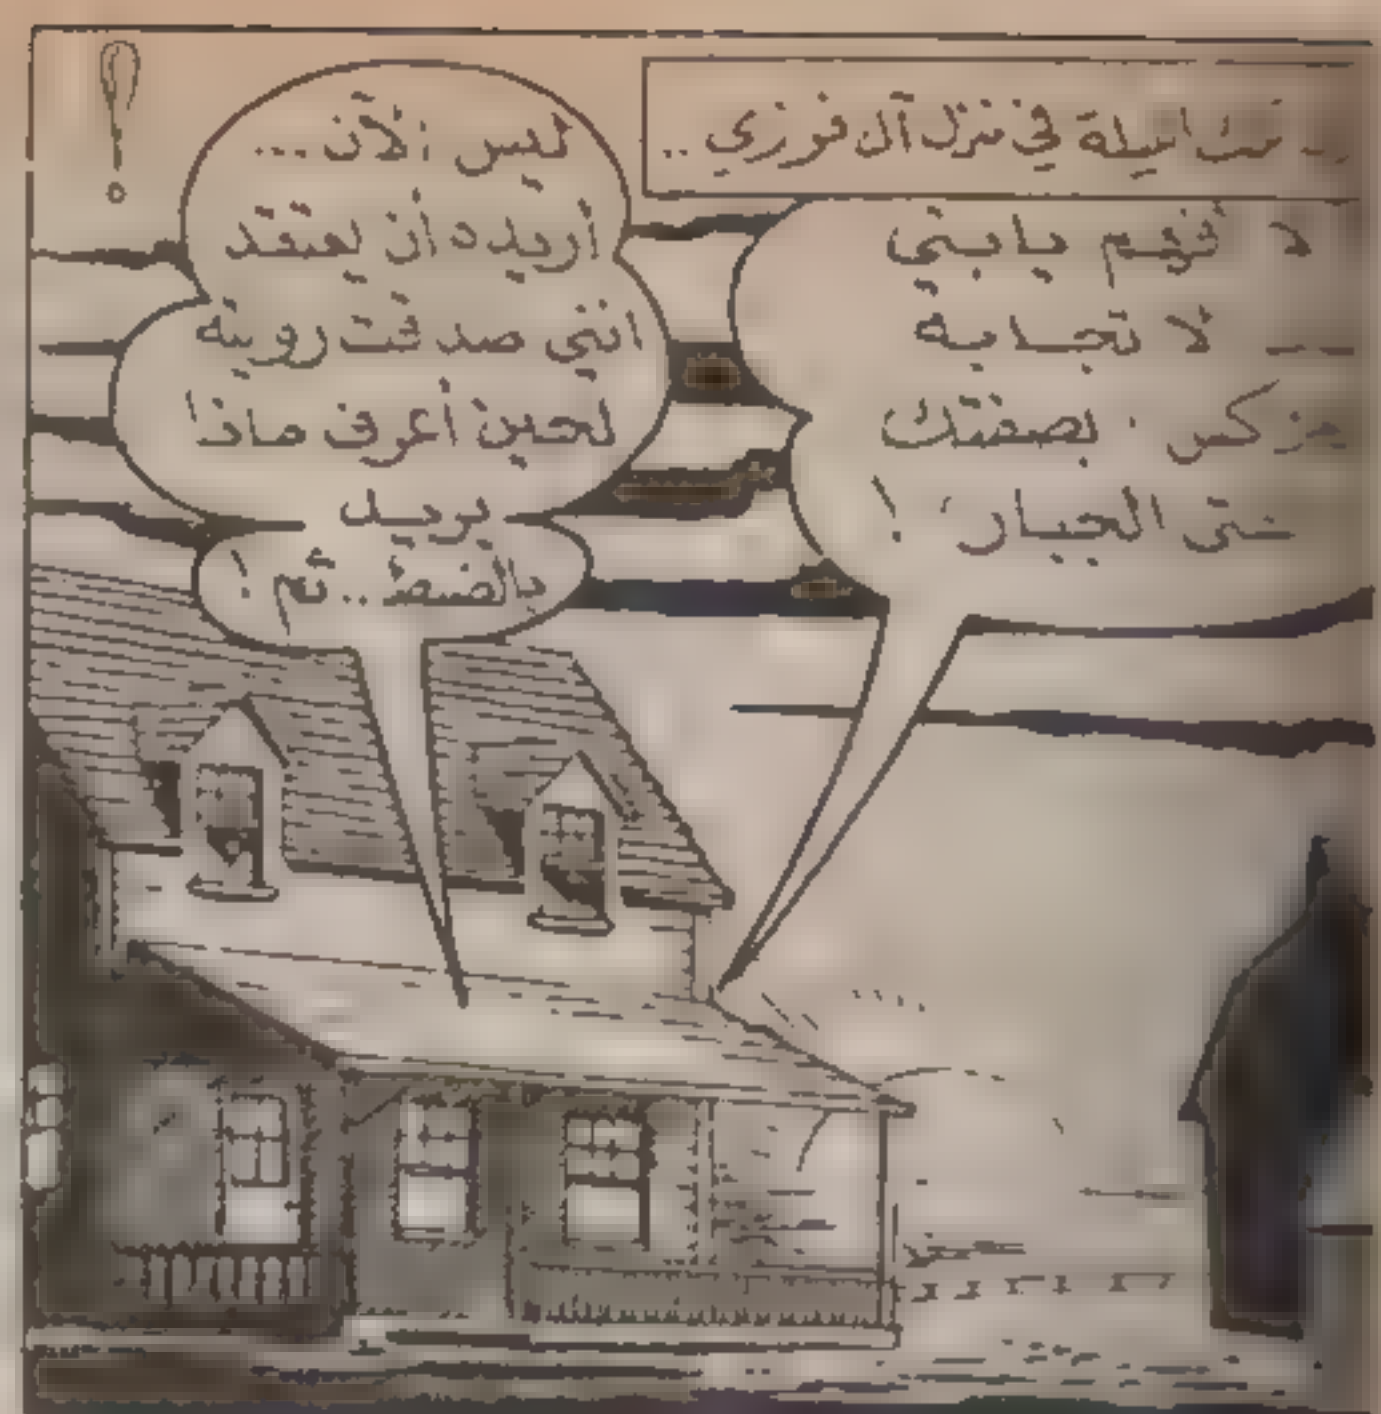 الليلة في منزل آل فوزي ..
لا أفهم يا بني
لا تجابه
بصفتك
الجبار !
ليس الآن ...
أريده أن يعتقد
انني صدقت روينه
لحين أعرف ماذا
يريد
بالضبط .. ثم !
!